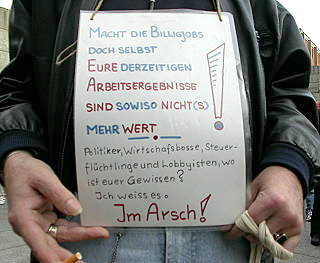 MACHT DIE BILLIGJOBS
DOCH SELBST
EURE DERZEITIGEN
ARBEITSERGEBNISSE
SIND SOWISO NICHT(S)
MEHR WERT !
Politiker, Wirtschafsbosse, Steuer-
flüchtlinge und Lobbyisten, wo
ist euer Gewissen?
Ich weiss es.
Im Arsch!